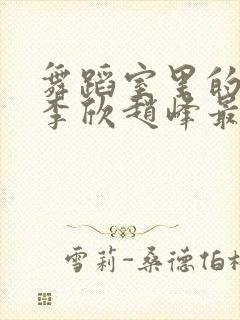 舞蹈室里的
李欣趙峰最
雪莉-桑德伯格